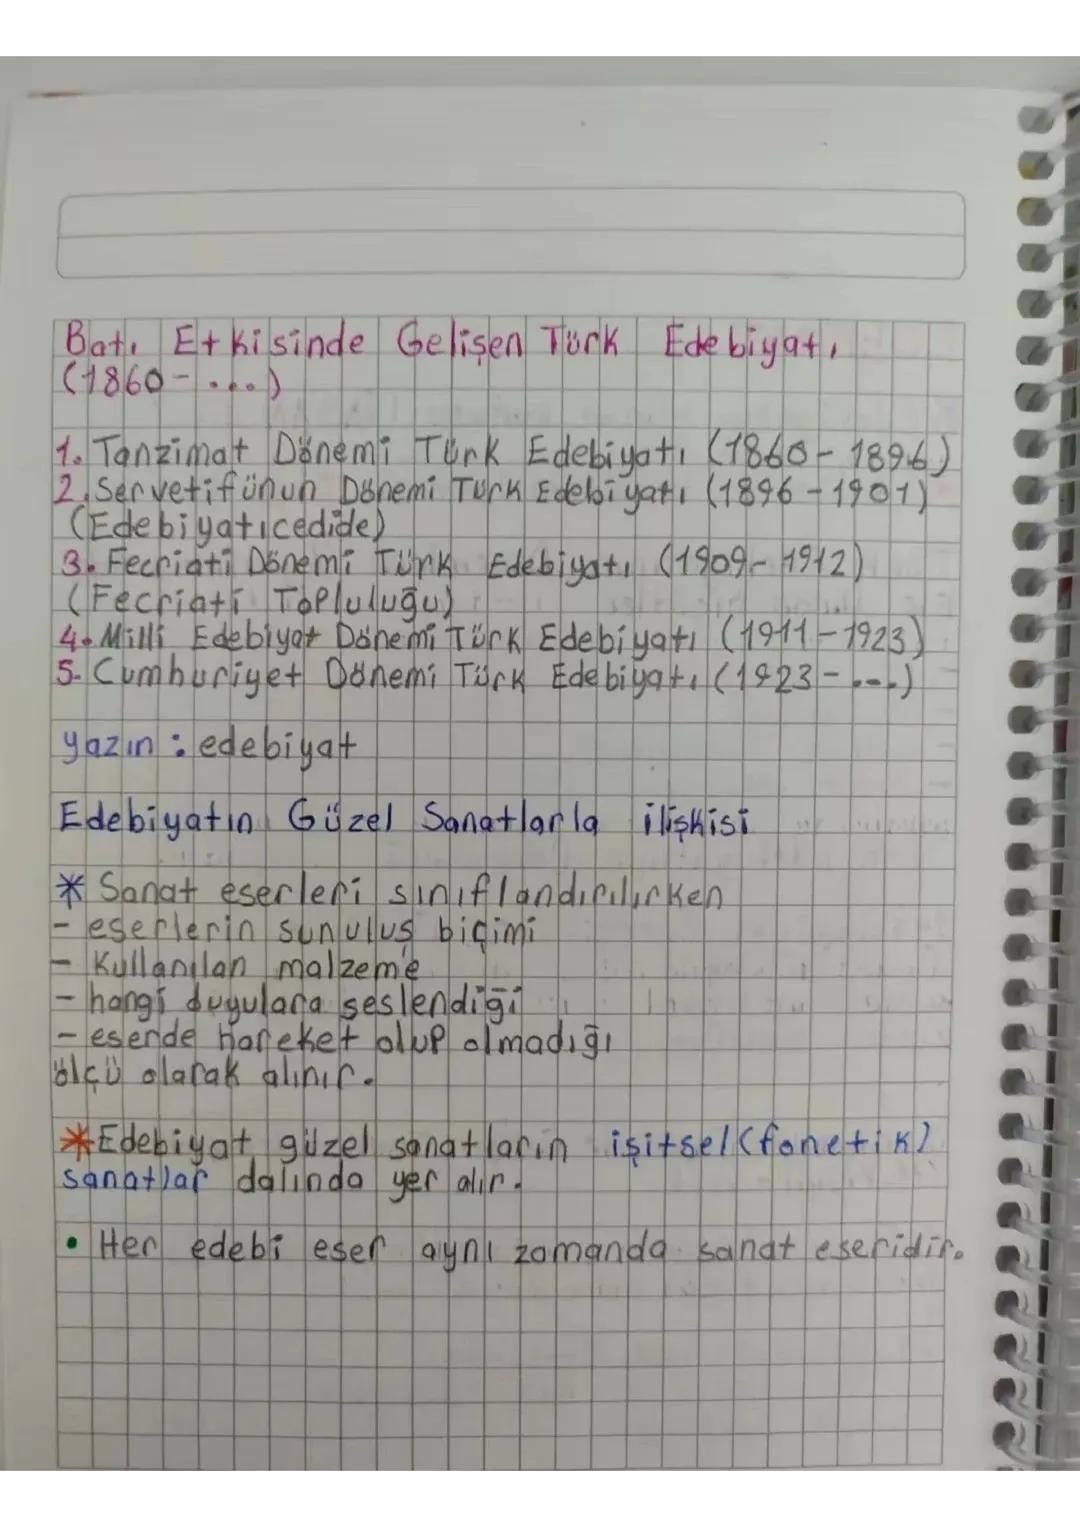 Batı Etkisinde Gelişen Türk Edebiyatı
(1860-....)
1. Tanzimat Dönemi Türk Edebiyatı (1860-1896)
2. Servetifünun Dönemi Türk Edebiyatı (1896-1901)
(Edebiyatıcedide)
3. Fecriati Dönemi Türk Edebiyatı (1909-1912)
(Fecriati Topluluğu)
4. Milli Edebiyat Dönemi Türk Edebiyatı (1911-1923)
5. Cumhuriyet Dönemi Türk Edebiyatı (1923-....)
yazın : edebiyat
Edebiyatın Güzel Sanatlarla ilişkisi
* Sanat eserleri sınıflandırılırken
- eserlerin sunuluş biçimi
- Kullanılan malzeme
- hangi duyulara seslendiği
- eserde hareket olup olmadığı
ölçü olarak alınır.
*Edebiyat güzel sanatların işitsel (fonetik)
sanatlar dalında yer alır.
• Her edebi eser aynı zamanda sanat eseridir.